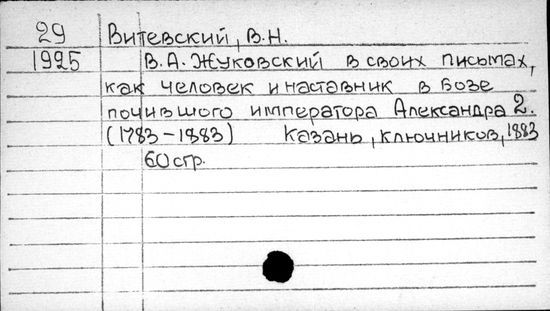 29 Витевский, В.Н.
1925 В.А. Жуковский в своих письмах,
как человек и наставник в Бозе
почившого императора Александра 2.
(1783-1883) Казань, Ключников, 1883
60 стр.